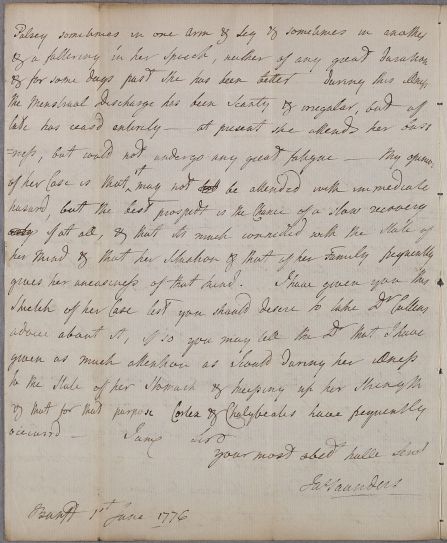 Palsey sometimes in one arm & leg & sometimes in another
& a faltering in her Speech, neither of any great duration
& for some days past She has been better During this Illness
the Menstrual discharge has been Scanty & irregular, but of
late has ceasd entirely — at present she attends her busi
=ness, but would not undergo any great fatigue — My opinion
of her Case is that it may not be attended with immediate
hazard, but the best prospect is the Chance of a Slow recovery
if at all, & that its much connected with the State of
her Mind & that her Situation & that of her Family frequently
gives her uneasiness of that kind. I have given you this
Sketch of her Case lest you should desire to take Dr Cullens
advice about it, if so you may tell the Dr that I have
given as much attention as I could during her illness
to the State of her Stomach & keeping up her Strength
& that for that purpose Cortex & Chalybeates have frequently
occurred — I am Sir
your most obedt hulle Servt
Jas Saunders
Banff 1st June 1776